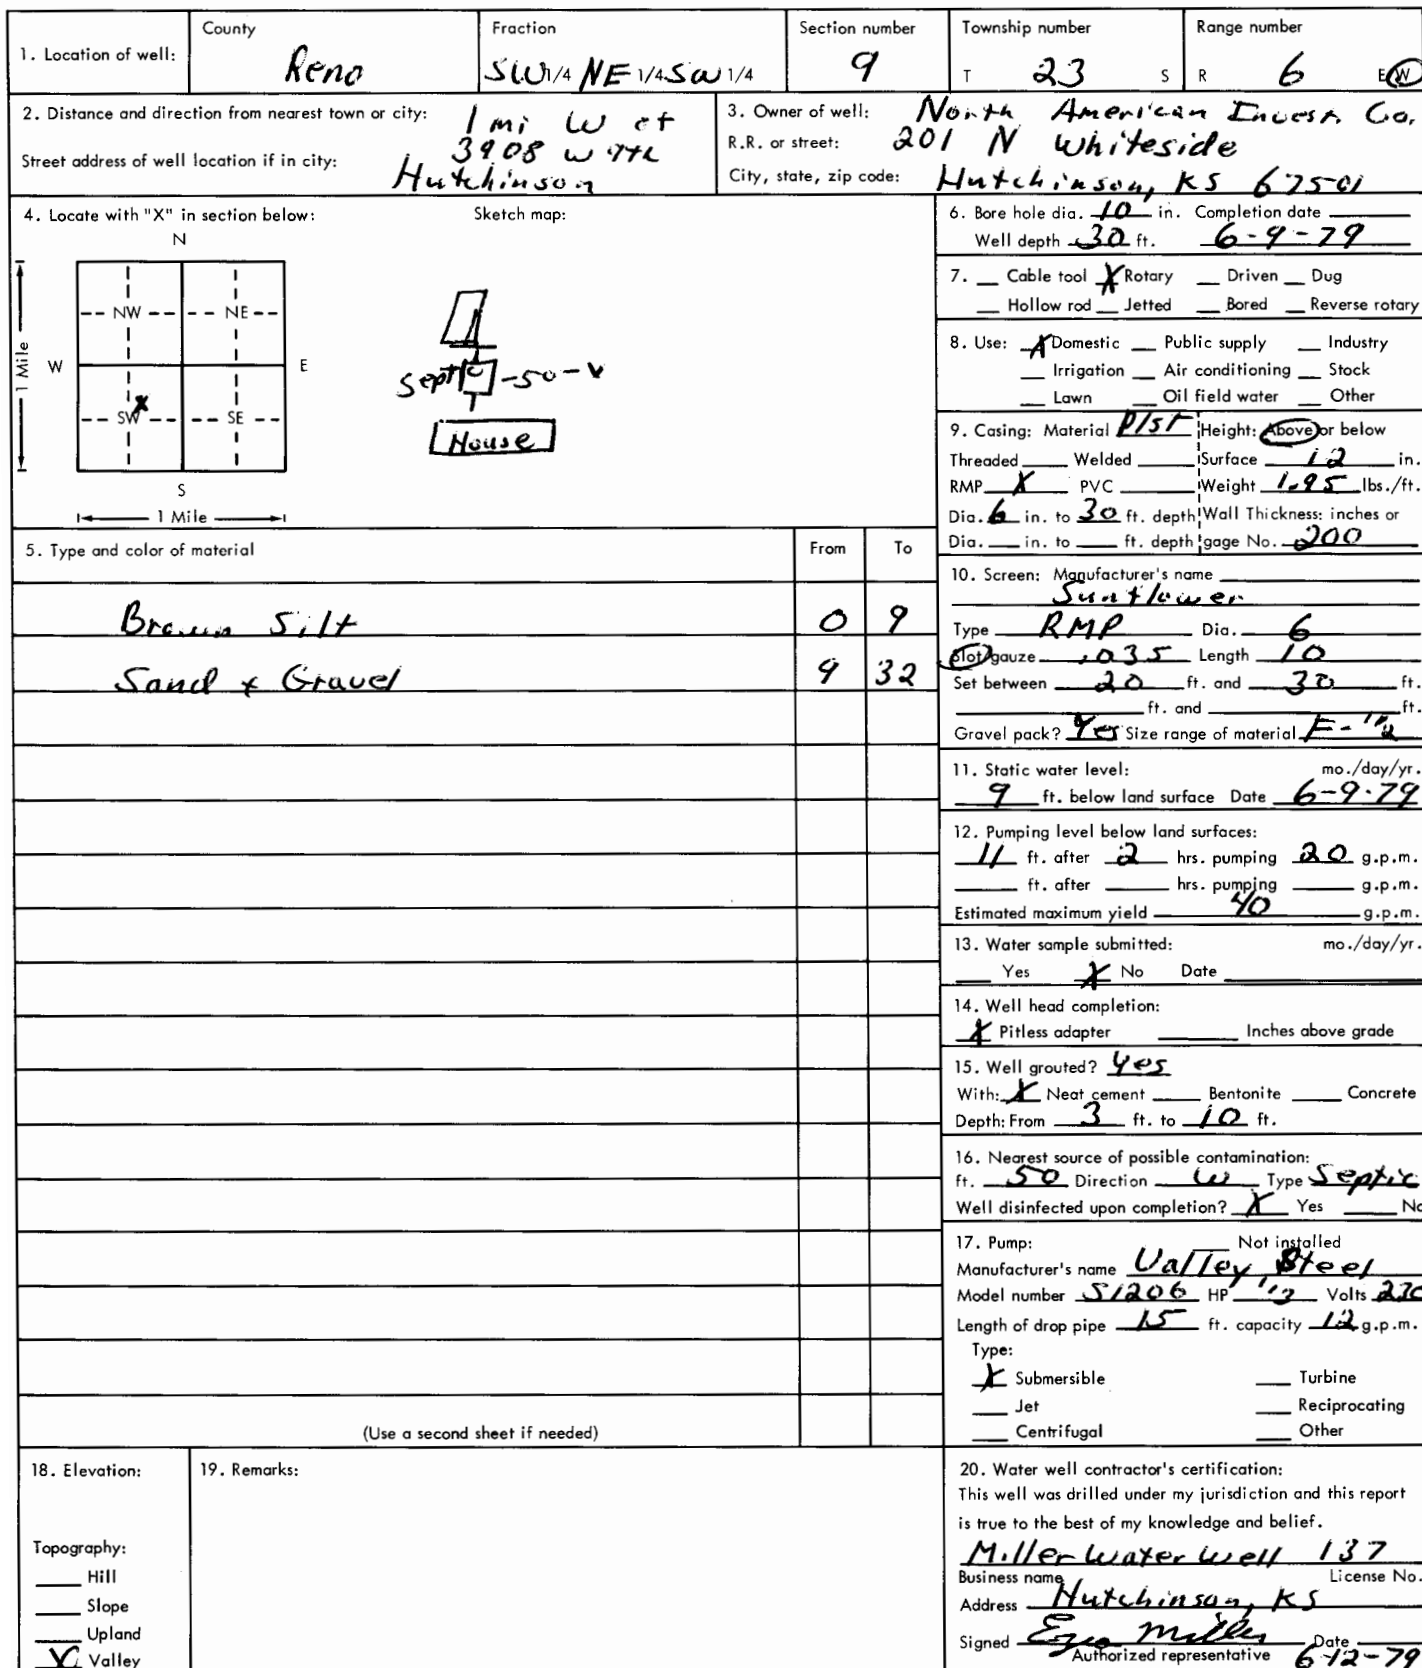 1. Location of well: County Reno Fraction SW 1/4 NE 1/4 SW 1/4 Section number 9 Township number T 23 S Range number R 6 E W
2. Distance and direction from nearest town or city: 1 mi W of
Street address of well location if in city: 3908 W 4th
Hutchinson
3. Owner of well: North American Invest. Co.
R.R. or street: 201 N Whiteside
City, state, zip code: Hutchinson, KS 67501
4. Locate with "X" in section below: Sketch map:
N
NW NE
W E
1 Mile
SW X SE
S
1 Mile
Septic -50-
House
5. Type and color of material From To
Brown Silt 0 9
Sand + Gravel 9 32
(Use a second sheet if needed)
6. Bore hole dia. 10 in. Completion date
Well depth 30 ft. 6-9-79
7. Cable tool X Rotary Driven Dug
Hollow rod Jetted Bored Reverse rotary
8. Use: X Domestic Public supply Industry
Irrigation Air conditioning Stock
Lawn Oil field water Other
9. Casing: Material Plst Height: Above or below
Threaded Welded Surface 12 in.
RMP X PVC Weight 1.95 lbs./ft.
Dia. 6 in. to 30 ft. depth Wall Thickness: inches or
Dia. in. to ft. depth gage No. 200
10. Screen: Manufacturer's name
Sunflower
Type RMP Dia. 6
Slot/gauze .035 Length 10
Set between 20 ft. and 30 ft.
ft. and ft.
Gravel pack? Yes Size range of material
11. Static water level: mo./day/yr.
9 ft. below land surface Date 6-9-79
12. Pumping level below land surfaces:
11 ft. after 2 hrs. pumping 20 g.p.m.
ft. after hrs. pumping g.p.m.
Estimated maximum yield 40 g.p.m.
13. Water sample submitted: mo./day/yr.
Yes X No Date
14. Well head completion:
X Pitless adapter Inches above grade
15. Well grouted? Yes
With: X Neat cement Bentonite Concrete
Depth: From 3 ft. to 10 ft.
16. Nearest source of possible contamination:
ft. 50 Direction W Type Septic
Well disinfected upon completion? X Yes No
17. Pump: Not installed
Manufacturer's name Valley Steel
Model number S1206 HP 1/3 Volts 230
Length of drop pipe 15 ft. capacity 12 g.p.m.
Type:
X Submersible Turbine
Jet Reciprocating
Centrifugal Other
18. Elevation:
Topography:
Hill
Slope
Upland
X Valley
19. Remarks:
20. Water well contractor's certification:
This well was drilled under my jurisdiction and this report
is true to the best of my knowledge and belief.
Miller Water Well 137
Business name License No.
Address Hutchinson, KS
Signed Miller Date
Authorized representative 6-12-79